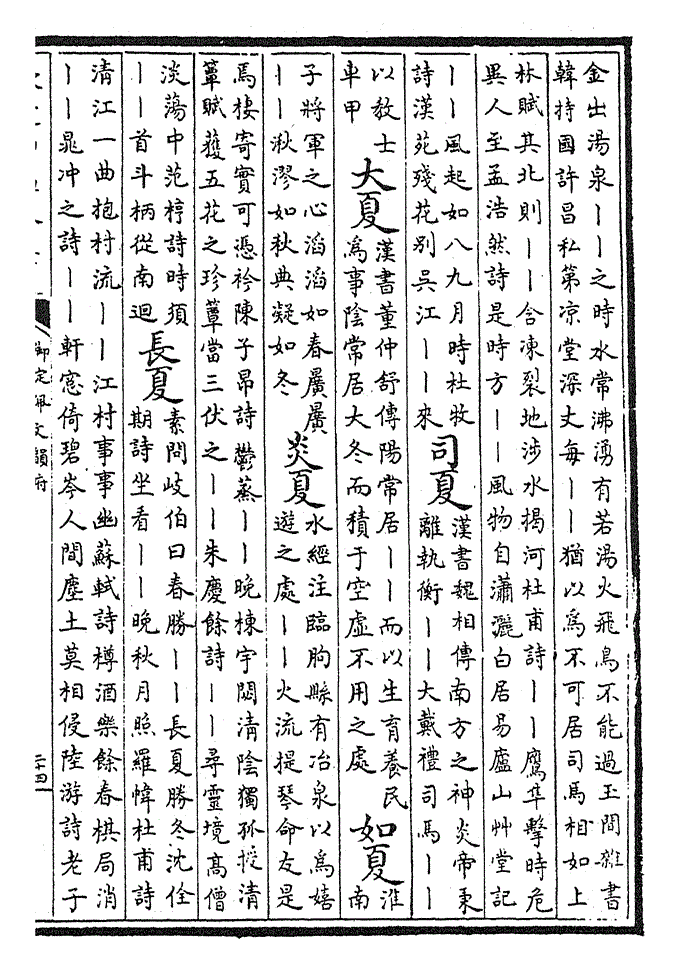 金出湯泉丨丨之時水常沸湧有若湯火飛鳥不能過王間雜書
韓持國許昌私第凉堂深丈每丨丨猶以爲不可居司馬相如上
林賦其北則丨丨含凍裂地涉水揭河杜甫詩丨丨鷹隼擊時危
異人至孟浩然詩是時方丨丨風物自瀟灑白居易廬山艸堂記
丨丨風起如八九月時杜牧
詩漢苑殘花別吳江丨丨來
司夏
漢書魏相傳南方之神炎帝秉
離執衡丨丨大戴禮司馬丨丨
以教士
車甲
大夏
漢書董仲舒傳陽常居丨丨而以生育養民
爲事陰常居大冬而積于空虛不用之處
如夏
淮
南
子將軍之心滔滔如春廣廣
丨丨湫漻如秋典凝如冬
炎夏
水經注臨朐縣有冶泉以爲嬉
遊之處丨丨火流提琴命友是
焉棲寄實可憑衿陳子昂詩鬱蒸丨丨晚棟宇閟清陰獨孤授清
簟賦獲五花之珍簟當三伏之丨丨朱慶餘詩丨丨尋靈境高僧
淡蕩中范梈詩時須
丨丨首斗柄從南迴
長夏
素問岐伯曰春勝丨丨長夏勝冬沈佺
期詩坐看丨丨晚秋月照羅幃杜甫詩
清江一曲抱村流丨丨江村事事幽蘇軾詩樽酒樂餘春棋局消
丨丨晁冲之詩丨丨軒窓倚碧岑人間塵土莫相侵陸游詩老子
御定佩文韻府
二十四